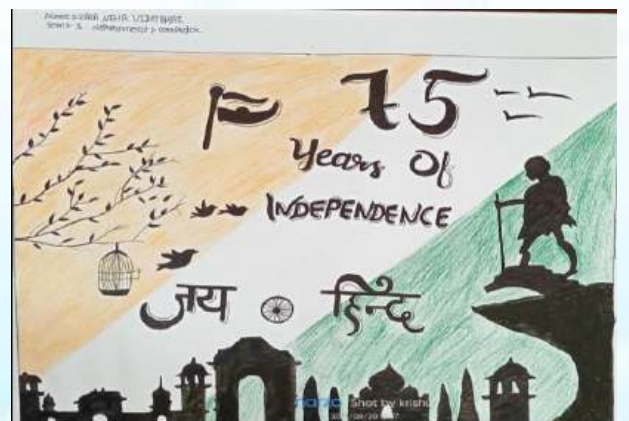 75
Years Of
INDEPENDENCE
जय हिन्द
Shot by krish